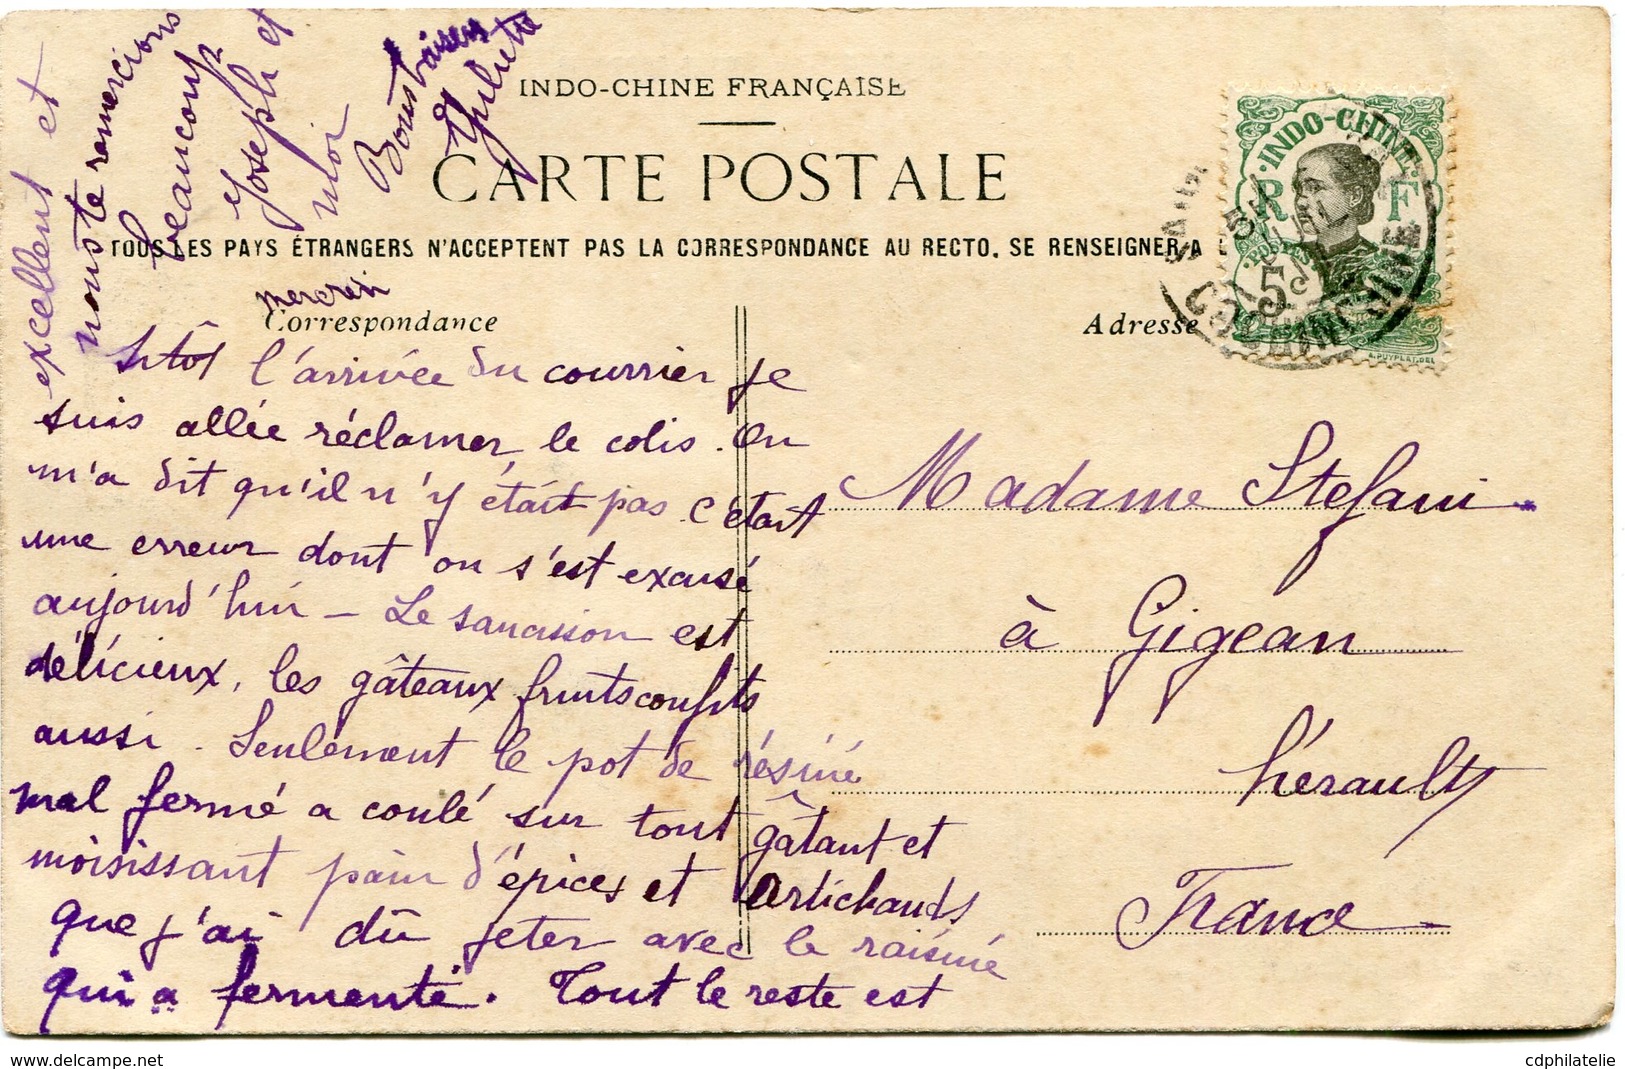 INDO-CHINE FRANÇAISE
CARTE POSTALE
TOUS LES PAYS ÉTRANGERS N'ACCEPTENT PAS LA CORRESPONDANCE AU RECTO. SE RENSEIGNER A
Correspondance
Adresse
INDO-CHINE
R F
POSTES
5c
A. PUYPLAT. DEL
COCHINCHINE
mercredi
Sitôt l'arrivée du courrier je
suis allée réclamer le colis. On
m'a dit qu'il n'y était pas. C'était
une erreur dont on s'est excusé
aujourd'hui – Le saucisson est
délicieux, les gâteaux fruits confits
aussi. Seulement le pot de résiné
mal fermé a coulé sur tout gâtant et
moisissant pain d'épices et artichauds
que j'ai dû jeter avec le raisiné
qui a fermenté. Tout le reste est
excellent et
nous te remercions
beaucoup
Joseph et
moi
Bons baisers
Juliette
Madame Stefani
à Gigean
hérault
France
cdphilatelie